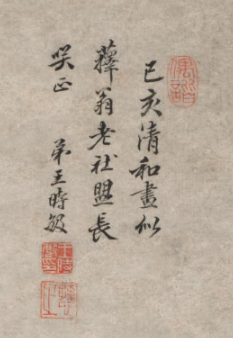 己亥清和畫似
蘀翁老社盟長
笑正
弟王時敏